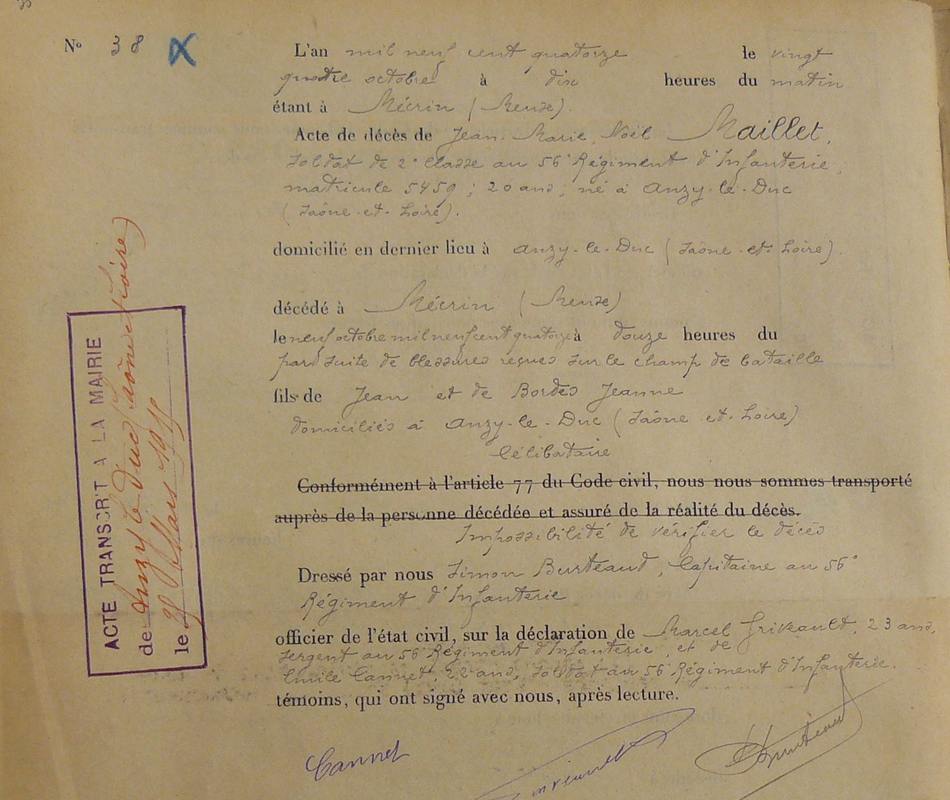 N° 38
L'an mil neuf cent quatorze le vingt
quatre octobre à dix heures du matin
étant à Mécrin (Meuse).
Acte de décès de Jean Marie Noël Maillet,
soldat de 2e classe au 56e Régiment d'Infanterie,
matricule 5459 ; 20 ans ; né à Anzy-le-Duc
(Saône-et-Loire).
domicilié en dernier lieu à Anzy-le-Duc (Saône-et-Loire).
décédé à Mécrin (Meuse)
le neuf octobre mil neuf cent quatorze à douze heures du
par suite de blessures reçues sur le champ de bataille
fils de Jean et de Bordes Jeanne
domiciliés à Anzy-le-Duc (Saône et-Loire)
Célibataire
Conformément à l'article 77 du Code civil, nous nous sommes transporté
auprès de la personne décédée et assuré de la réalité du décès.
Impossibilité de vérifier le décès
Dressé par nous Simon Burteaud, Capitaine au 56e
Régiment d'Infanterie
officier de l'état civil, sur la déclaration de Marcel Griveault, 23 ans,
sergent au 56e Régiment d'Infanterie, et de
Emile Cannet, 22 ans, soldat au 56e Régiment d'Infanterie.
témoins, qui ont signé avec nous, après lecture.
Cannet
ACTE TRANSCRIT A LA MAIRIE
de Anzy le Duc (Saône et Loire)
le Mars 1915